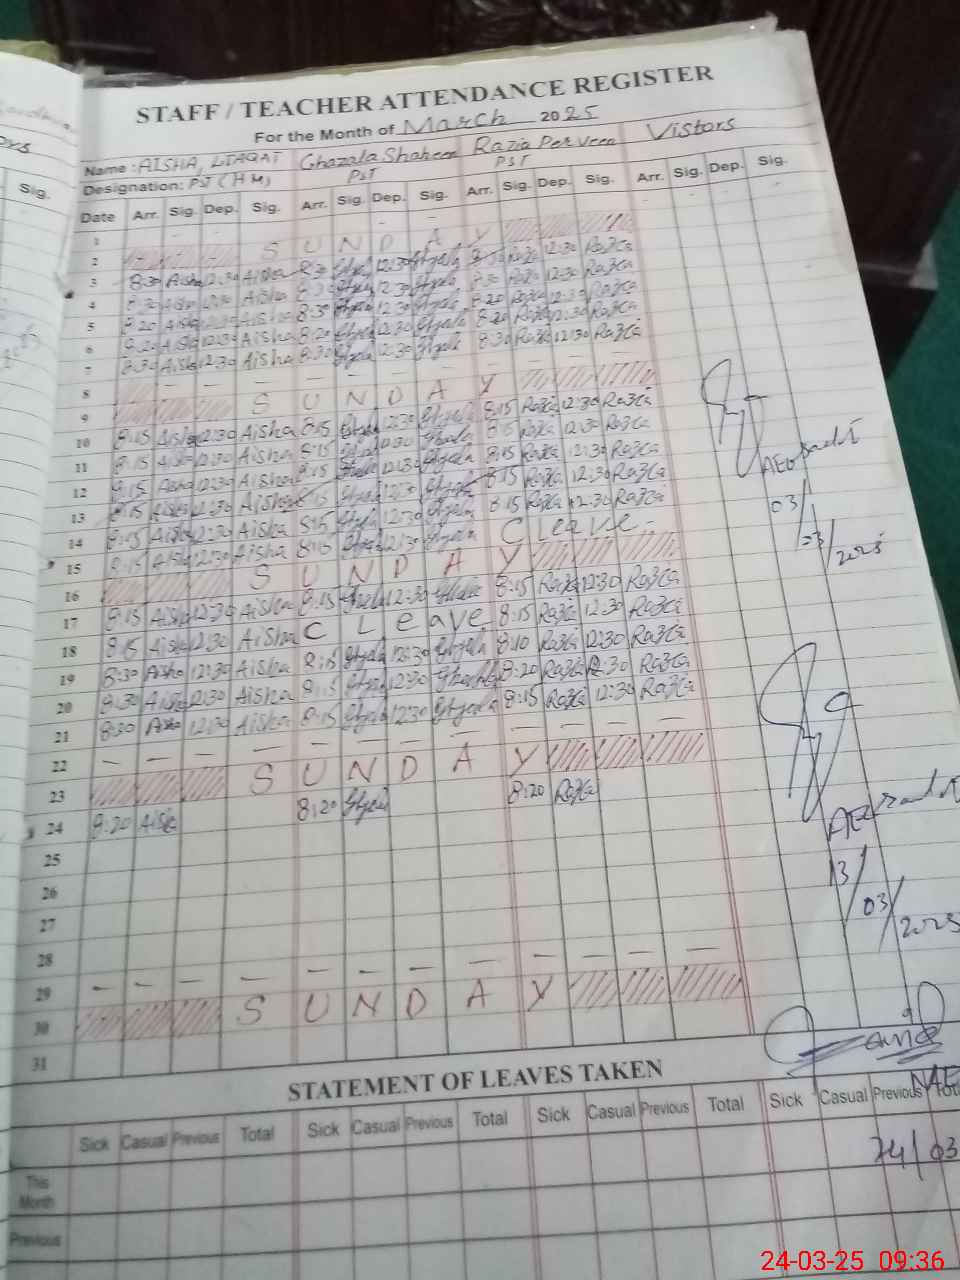 STAFF / TEACHER ATTENDANCE REGISTER
For the Month of March 2025
Name: AISHA, LIAQAT Ghazala Shaheen Razia Perveen Vistors
Designation: PST (HM) PST PST
Sig.
Date Arr. Sig. Dep. Sig. Arr. Sig. Dep. Sig. Arr. Sig. Dep. Sig. Arr. Sig. Dep. Sig.
1
2 S U N D A Y
3 8:30 Aisha 12:30 Aisha 8:30 12:30 8:30 Razia 12:30 Razia
4 8:30 Aisha 12:30 Aisha 8:30 12:30 8:30 Razia 12:30 Razia
5 8:20 Aisha 12:30 Aisha 8:30 12:30 8:20 Razia 12:30 Razia
6 8:20 Aisha 12:30 Aisha 8:20 12:30 8:20 Razia 12:30 Razia
7 8:30 Aisha 12:30 Aisha 8:30 12:30 8:30 Razia 12:30 Razia
8
9 S U N D A Y
10 8:15 Aisha 12:30 Aisha 8:15 12:30 8:15 Razia 12:30 Razia
11 8:15 Aisha 12:30 Aisha 8:15 12:30 8:15 Razia 12:30 Razia
12 8:15 Aisha 12:30 Aisha 8:15 12:30 8:15 Razia 12:30 Razia
13 8:15 Aisha 12:30 Aisha 8:15 12:30 8:15 Razia 12:30 Razia
14 8:15 Aisha 12:30 Aisha 8:15 12:30 8:15 Razia 12:30 Razia
15 8:15 Aisha 12:30 Aisha 8:15 12:30 C Leave
16 S U N D A Y
17 8:15 Aisha 12:30 Aisha 8:15 12:30 8:15 Razia 12:30 Razia
18 8:15 Aisha 12:30 Aisha C Leave 8:15 Razia 12:30 Razia
19 8:30 Aisha 12:30 Aisha 8:15 12:30 8:10 Razia 12:30 Razia
20 8:30 Aisha 12:30 Aisha 8:15 12:30 8:20 Razia 12:30 Razia
21 8:30 Aisha 12:30 Aisha 8:15 12:30 8:15 Razia 12:30 Razia
22
23 S U N D A Y
24 8:20 Aisha 8:20 8:20 Razia
25
26
27
28
29
30 S U N D A Y
31
AEO
03/03/2025
AEO
13/03/2025
24/03
STATEMENT OF LEAVES TAKEN
Sick Casual Previous Total Sick Casual Previous Total Sick Casual Previous Total Sick Casual Previous Total
This Month
Previous
24-03-25 09:36